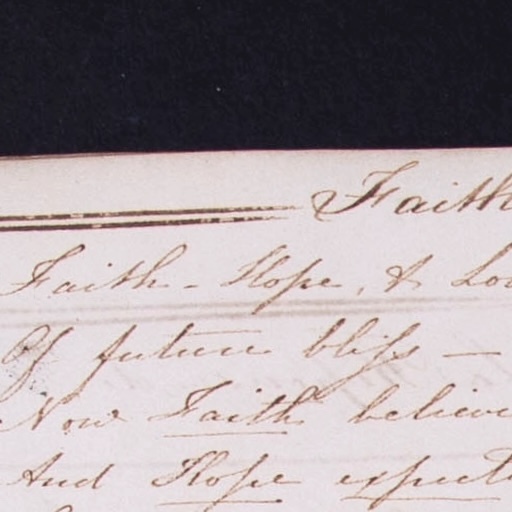 Faith
Faith - Hope, & Lov
Of future bliss —
Now Faith believe
And Hope expect